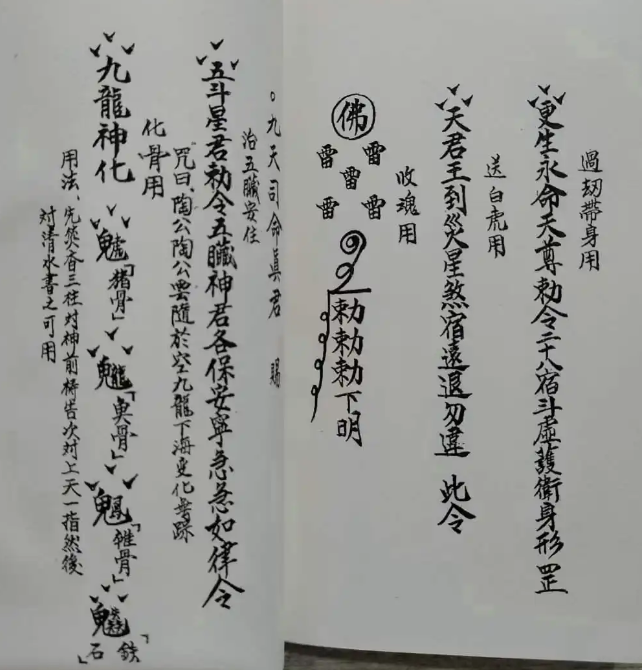 過刼帶身用
更生永命天尊勅令二十八宿斗虛護衛身形罡
送白虎用
天君王到災星煞宿遠退勿違 此令
收魂用
佛
雷 雷
雷
雷 雷
勅勅勅下明
。九天司命真君 賜
治五臟安住
五斗星君勅令五臟神君各保安寧急急如律令
化骨用
咒曰、陶公陶公雲隨於空九龍下海變化無跡
九龍神化
「猪骨」
「魚骨」
「雞骨」
「鉄石」
用法、先焚香三柱対神前禱告次対上天一指然後
対清水書之可用